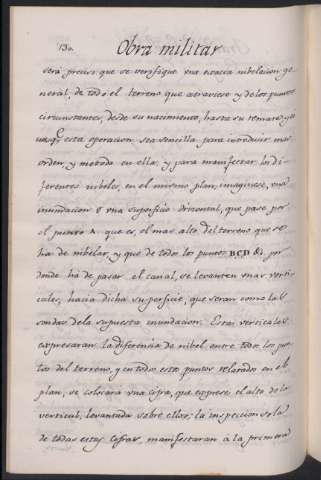 130.
Obra militar
será preciso que se verifique una exacta nibelacion ge
neral, de todo el terreno que atraviese y de los puntos
circunstantes, desde su nacimiento, hasta su remate, y
esta operacion sea sencilla para introducir mas
orden y metodo en ella, y para manifestar los di
ferentes nibeles, en el mismo plan, imaginese, una
inundacion ó una superficie orizontal, que pase por
el punto A. que es, el mas alto del terreno que se
ha de nibelar, y que de todos los puntos BCD &c, por
donde ha de pasar el canal, se levanten unas verti
cales, hacia dicha superficie, que seran como las
sondas de la supuesta inundacion. Estas verticales
expresaran la diferencia de nibel entre todos los pun
tos del terreno, y en todos estos puntos en el
plan, se colocará una cifra, que exprese el alto de la
vertical, levantada sobre ellos; la inspeccion sola
de todas estas cifras, manifestaran a la primera